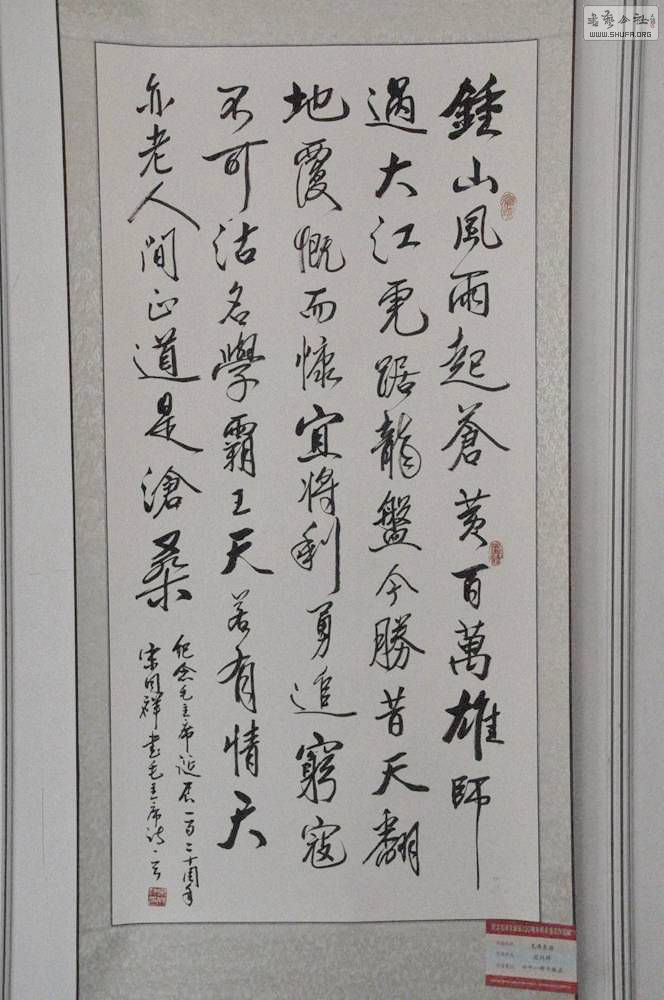 書藝公社
WWW.SHUFA.ORG
鍾山風雨起蒼黃百萬雄師
過大江虎踞龍盤今勝昔天翻
地覆慨而慷宜將剩勇追窮寇
不可沽名學霸王天若有情天
亦老人間正道是滄桑
紀念毛主席誕辰一百二十周年
宋祥書毛主席詩一首